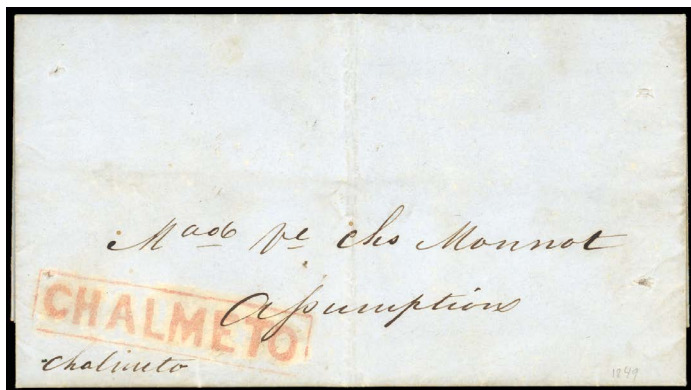 Made Ve Chs Monnot
Assumption
CHALMETO
Chalmeto
1849